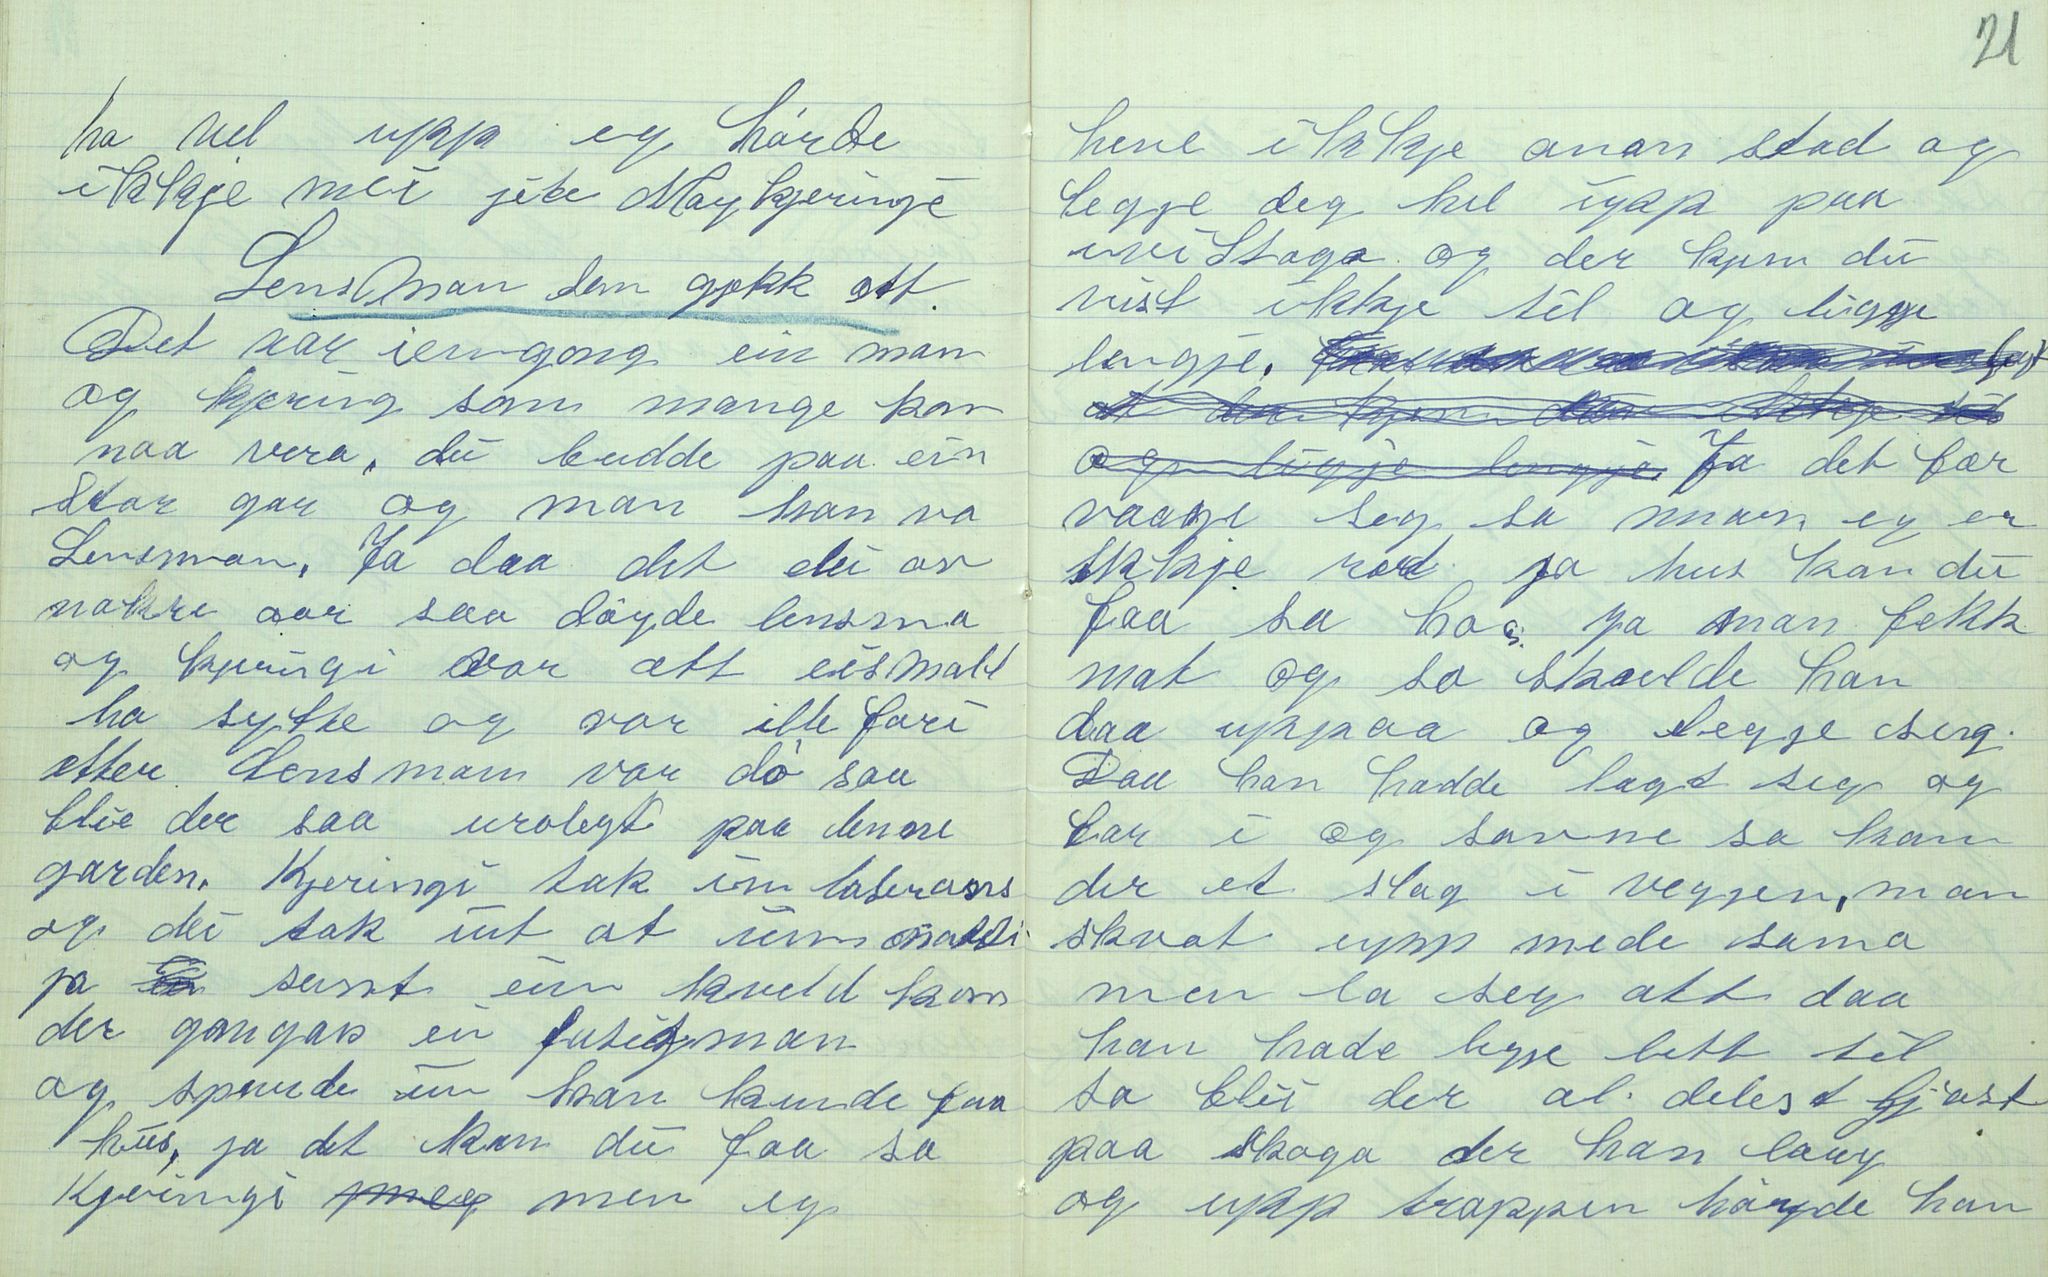 ha vel upp eg hørde
ikkje mei jete Maykjeringe
Lensman sem gjekk att.
Det var ieingong ein man
og kjering som mange kan
naa vera, dei budde paa ein
stor gar og man han va
Lensman. Ja daa det lei av
nokre aar saa døyde lensma
og kjeringi var att eismalt
ha sytte og var ille fari
etter Lensman var dø saa
blie der saa urolegt paa lensm
garden. Kjeringi tok inn
og dei tok ut at
ja seint ein kveld kom
der gangas ei fatigman
og spurde um han kunde faa
hus, ja det kan du faa sa
Kjeringi men eg
21
heve ikkje anan stad og
legge deg hel upp paa
nvistoga og der kjem du
vist ikkje til og ligge
lengje. Ja det fær
vaage seg sa man eg er
ikkje ræd ja hus kan du
faa sa hoo. Ja man fekk
mat og so skulde han
daa uppaa og legge seg.
Daa han hadde lagt seg og
lar i og sovne sa kam
der et slag i veggen, man
skvat upp mede sama
men la seg att daa
han hade legje lett til
sa blei der al delest ljost
paa skoga der han laag
og upp trappen høyde han